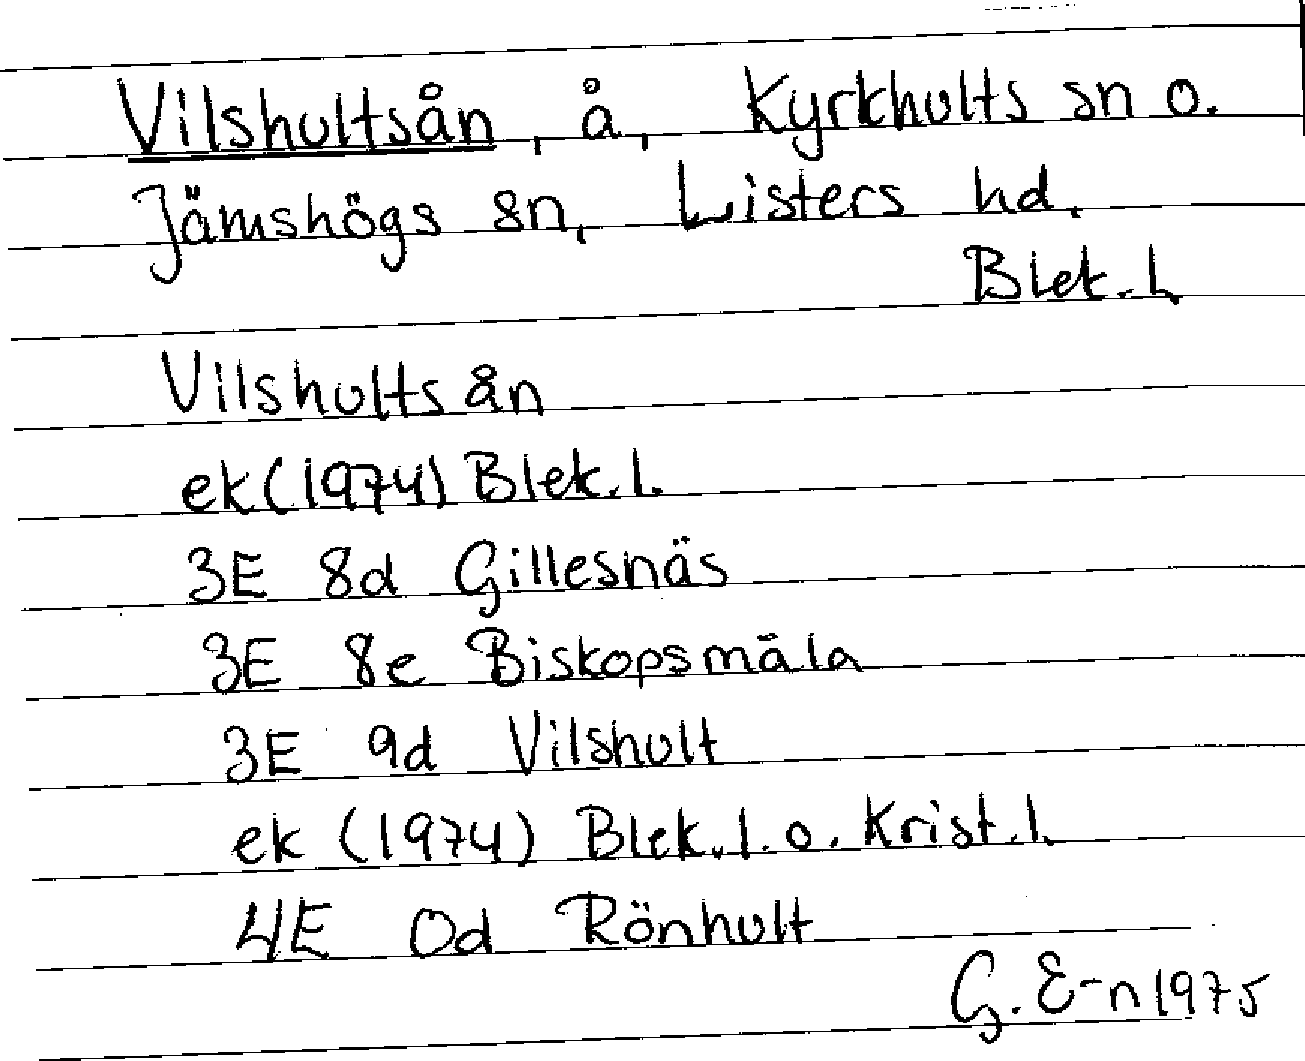 Vilshultsån, å, Kyrkhults sn o.
Jämshögs sn, Listers hd,
Blek. l.
Vilshultsån
ek (1974) Blek. l.
3E 8d Gillesnäs
3E 8e Biskopsmåla
3E 9d Vilshult
ek (1974) Blek. l. o. Krist. l.
4E 0d Rönhult
G. E-n 1975